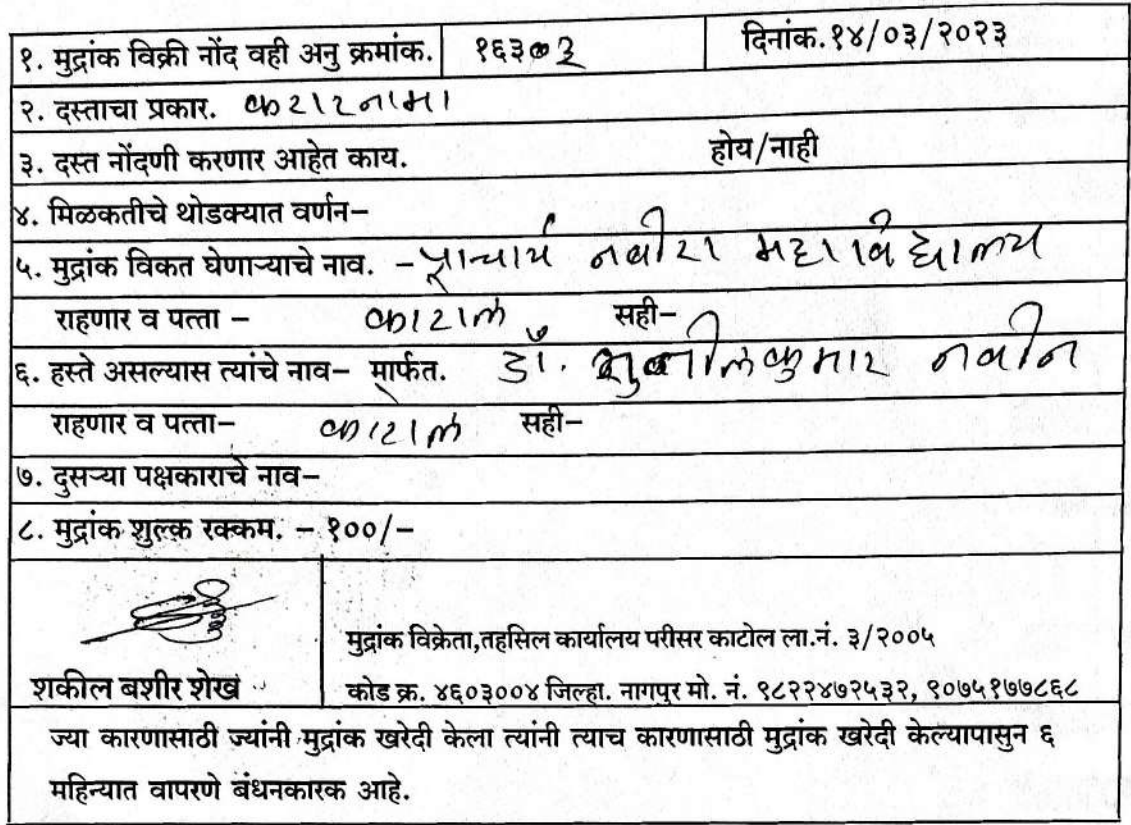 १. मुद्रांक विक्री नोंद वही अनु क्रमांक. दिनांक.१४/०३/२०२३
२. दस्ताचा प्रकार. करारनामा
३. दस्त नोंदणी करणार आहेत काय. होय/नाही
४. मिळकतीचे थोडक्यात वर्णन–
५. मुद्रांक विकत घेणाऱ्याचे नाव. – प्राचार्य नबीरा महाविद्यालय
राहणार व पत्ता – काटोल सही–
६. हस्ते असल्यास त्यांचे नाव– मार्फत. डॉ. सुनीलकुमार नवीन
राहणार व पत्ता– काटोल सही–
७. दुसऱ्या पक्षकाराचे नाव–
८. मुद्रांक शुल्क रक्कम. – १००/–
मुद्रांक विक्रेता,तहसिल कार्यालय परीसर काटोल ला.नं. ३/२००५
शकील बशीर शेख कोड क्र. ४६०३००४ जिल्हा. नागपुर मो. नं. ९८२२४७२५३२, ९०७५१७७८६८
ज्या कारणासाठी ज्यांनी मुद्रांक खरेदी केला त्यांनी त्याच कारणासाठी मुद्रांक खरेदी केल्यापासुन ६
महिन्यात वापरणे बंधनकारक आहे.